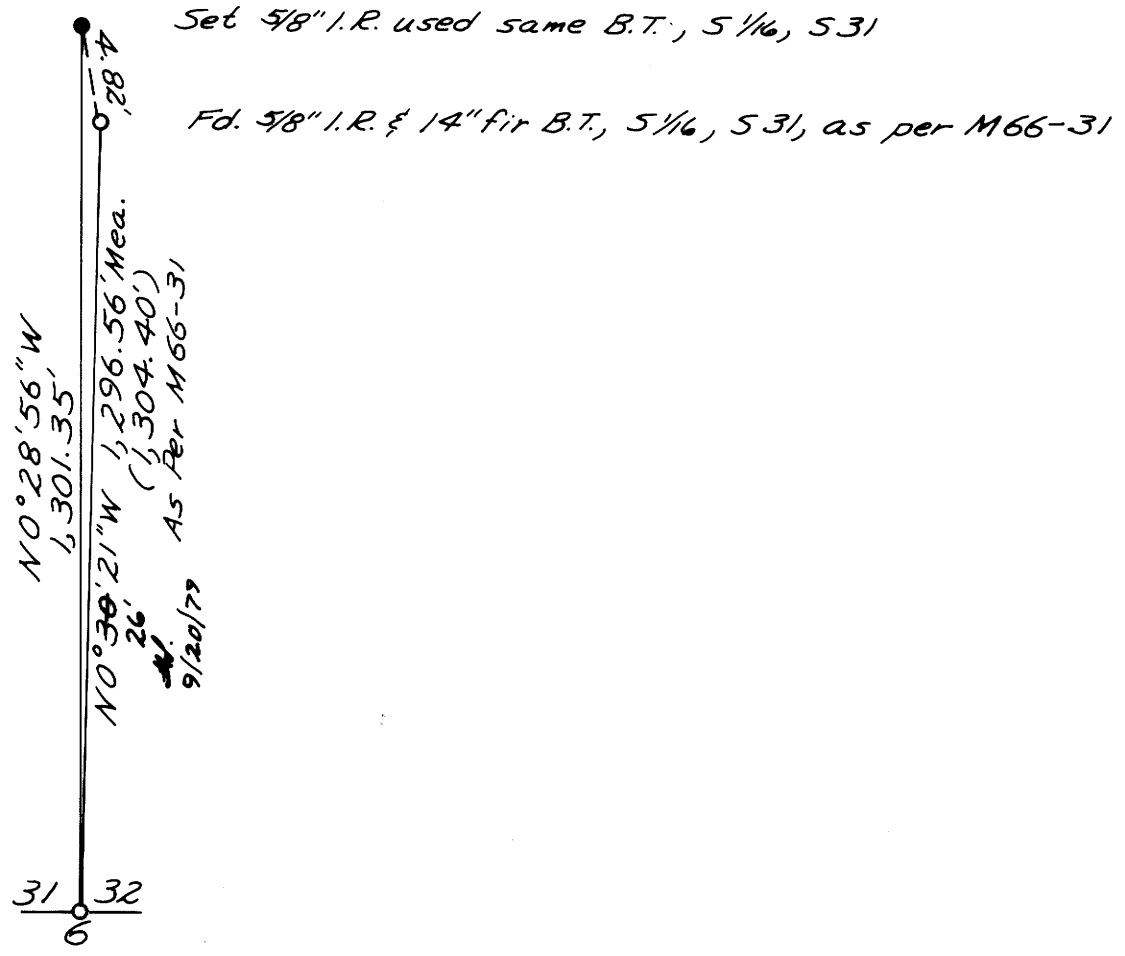 Set 5/8" I.R. used same B.T., S 1/16, S31
4.82'
Fd. 5/8" I.R. & 14" fir B.T., S 1/16, S 31, as per M66-31
N0°28'56"W
1,301.35'
N0°30'21"W 1,296.56' Mea.
26'
(1,304.40')
As Per M66-31
9/20/79
31 32
6